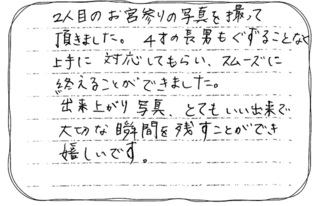 2人目のお宮参りの写真を撮って
頂きました。4才の長男もぐずることなく
上手に対応してもらい、スムーズに
終えることができました。
出来上がり写真、とてもいい出来で
大切な瞬間を残すことができ
嬉しいです。